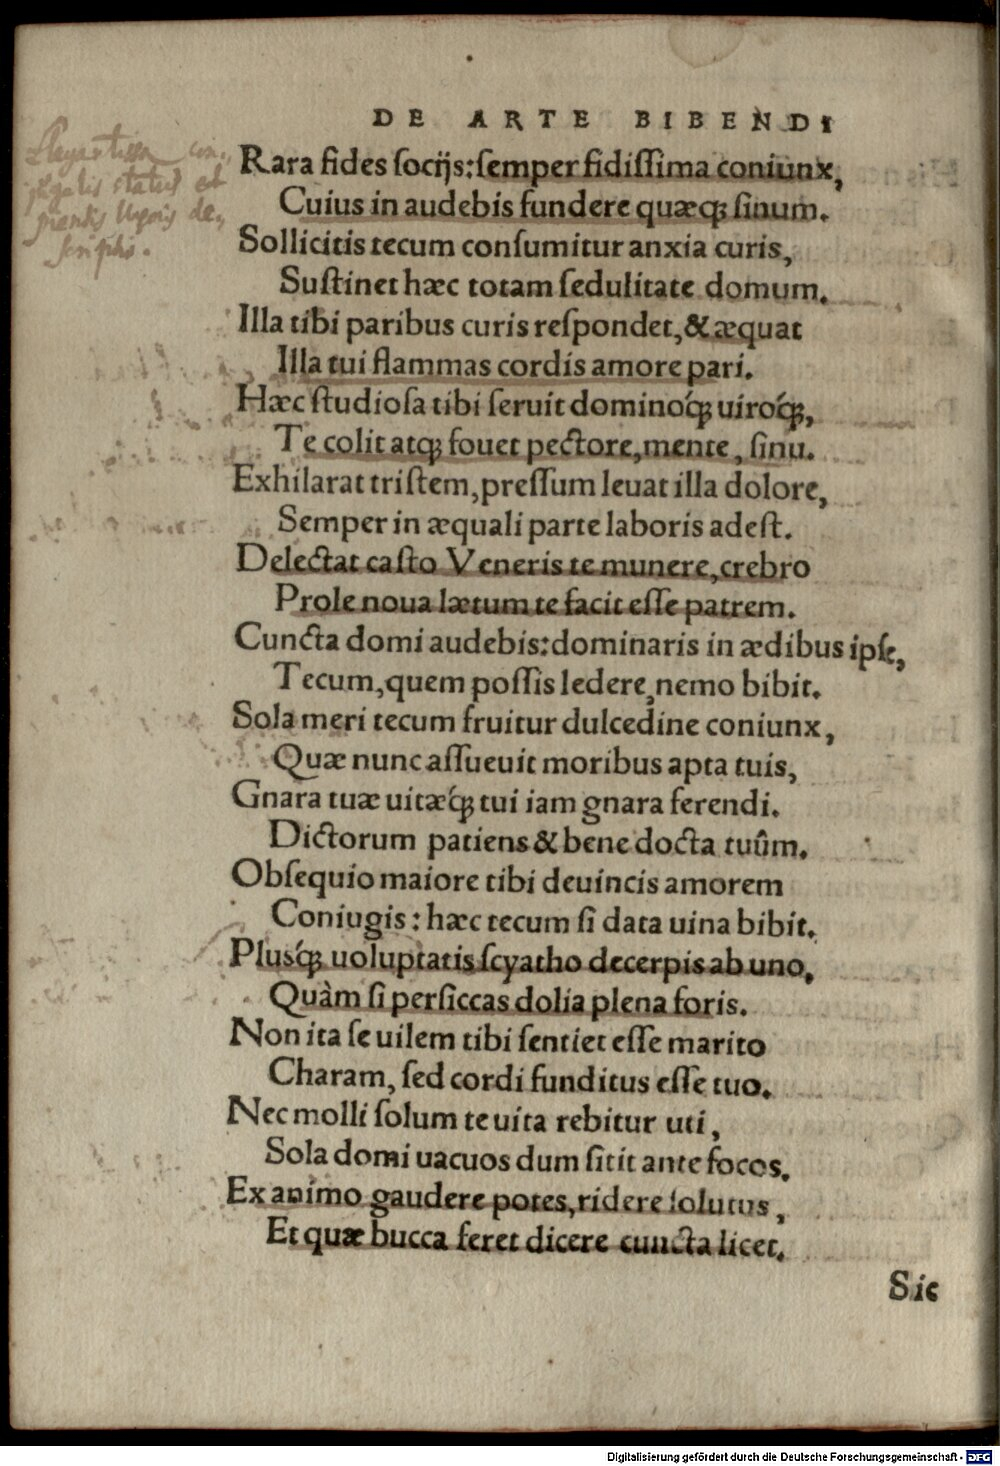 DE ARTE BIBENDI
Elegantissima con-
iugalis status et
pientis Uxoris de-
scriptio.
Rara fides socijs: semper fidissima coniunx,
Cuius in audebis fundere quæq; sinum.
Sollicitis tecum consumitur anxia curis,
Sustinet hæc totam sedulitate domum.
Illa tibi paribus curis respondet, & æquat
Illa tui flammas cordis amore pari.
Hæc studiosa tibi seruit dominoq́; uiroq́;,
Te colit atq; fouet pectore, mente, sinu.
Exhilarat tristem, pressum leuat illa dolore,
Semper in æquali parte laboris adest.
Delectat casto Veneris te munere, crebro
Prole noua lætum te facit esse patrem.
Cuncta domi audebis: dominaris in ædibus ipse,
Tecum, quem possis ledere, nemo bibit.
Sola meri tecum fruitur dulcedine coniunx,
Quæ nunc assueuit moribus apta tuis,
Gnara tuæ uitæq́; tui iam gnara ferendi.
Dictorum patiens & bene docta tuûm.
Obsequio maiore tibi deuincis amorem
Coniugis: hæc tecum si data uina bibit.
Plusq́; uoluptatis scyatho decerpis ab uno,
Quàm si persiccas dolia plena foris.
Non ita se uilem tibi sentiet esse marito
Charam, sed cordi funditus esse tuo.
Nec molli solum te uita rebitur uti,
Sola domi uacuos dum sitit ante focos.
Ex animo gaudere potes, ridere solutus,
Et quæ bucca feret dicere cuncta licet.
Sic
Digitalisierung gefördert durch die Deutsche Forschungsgemeinschaft - DFG